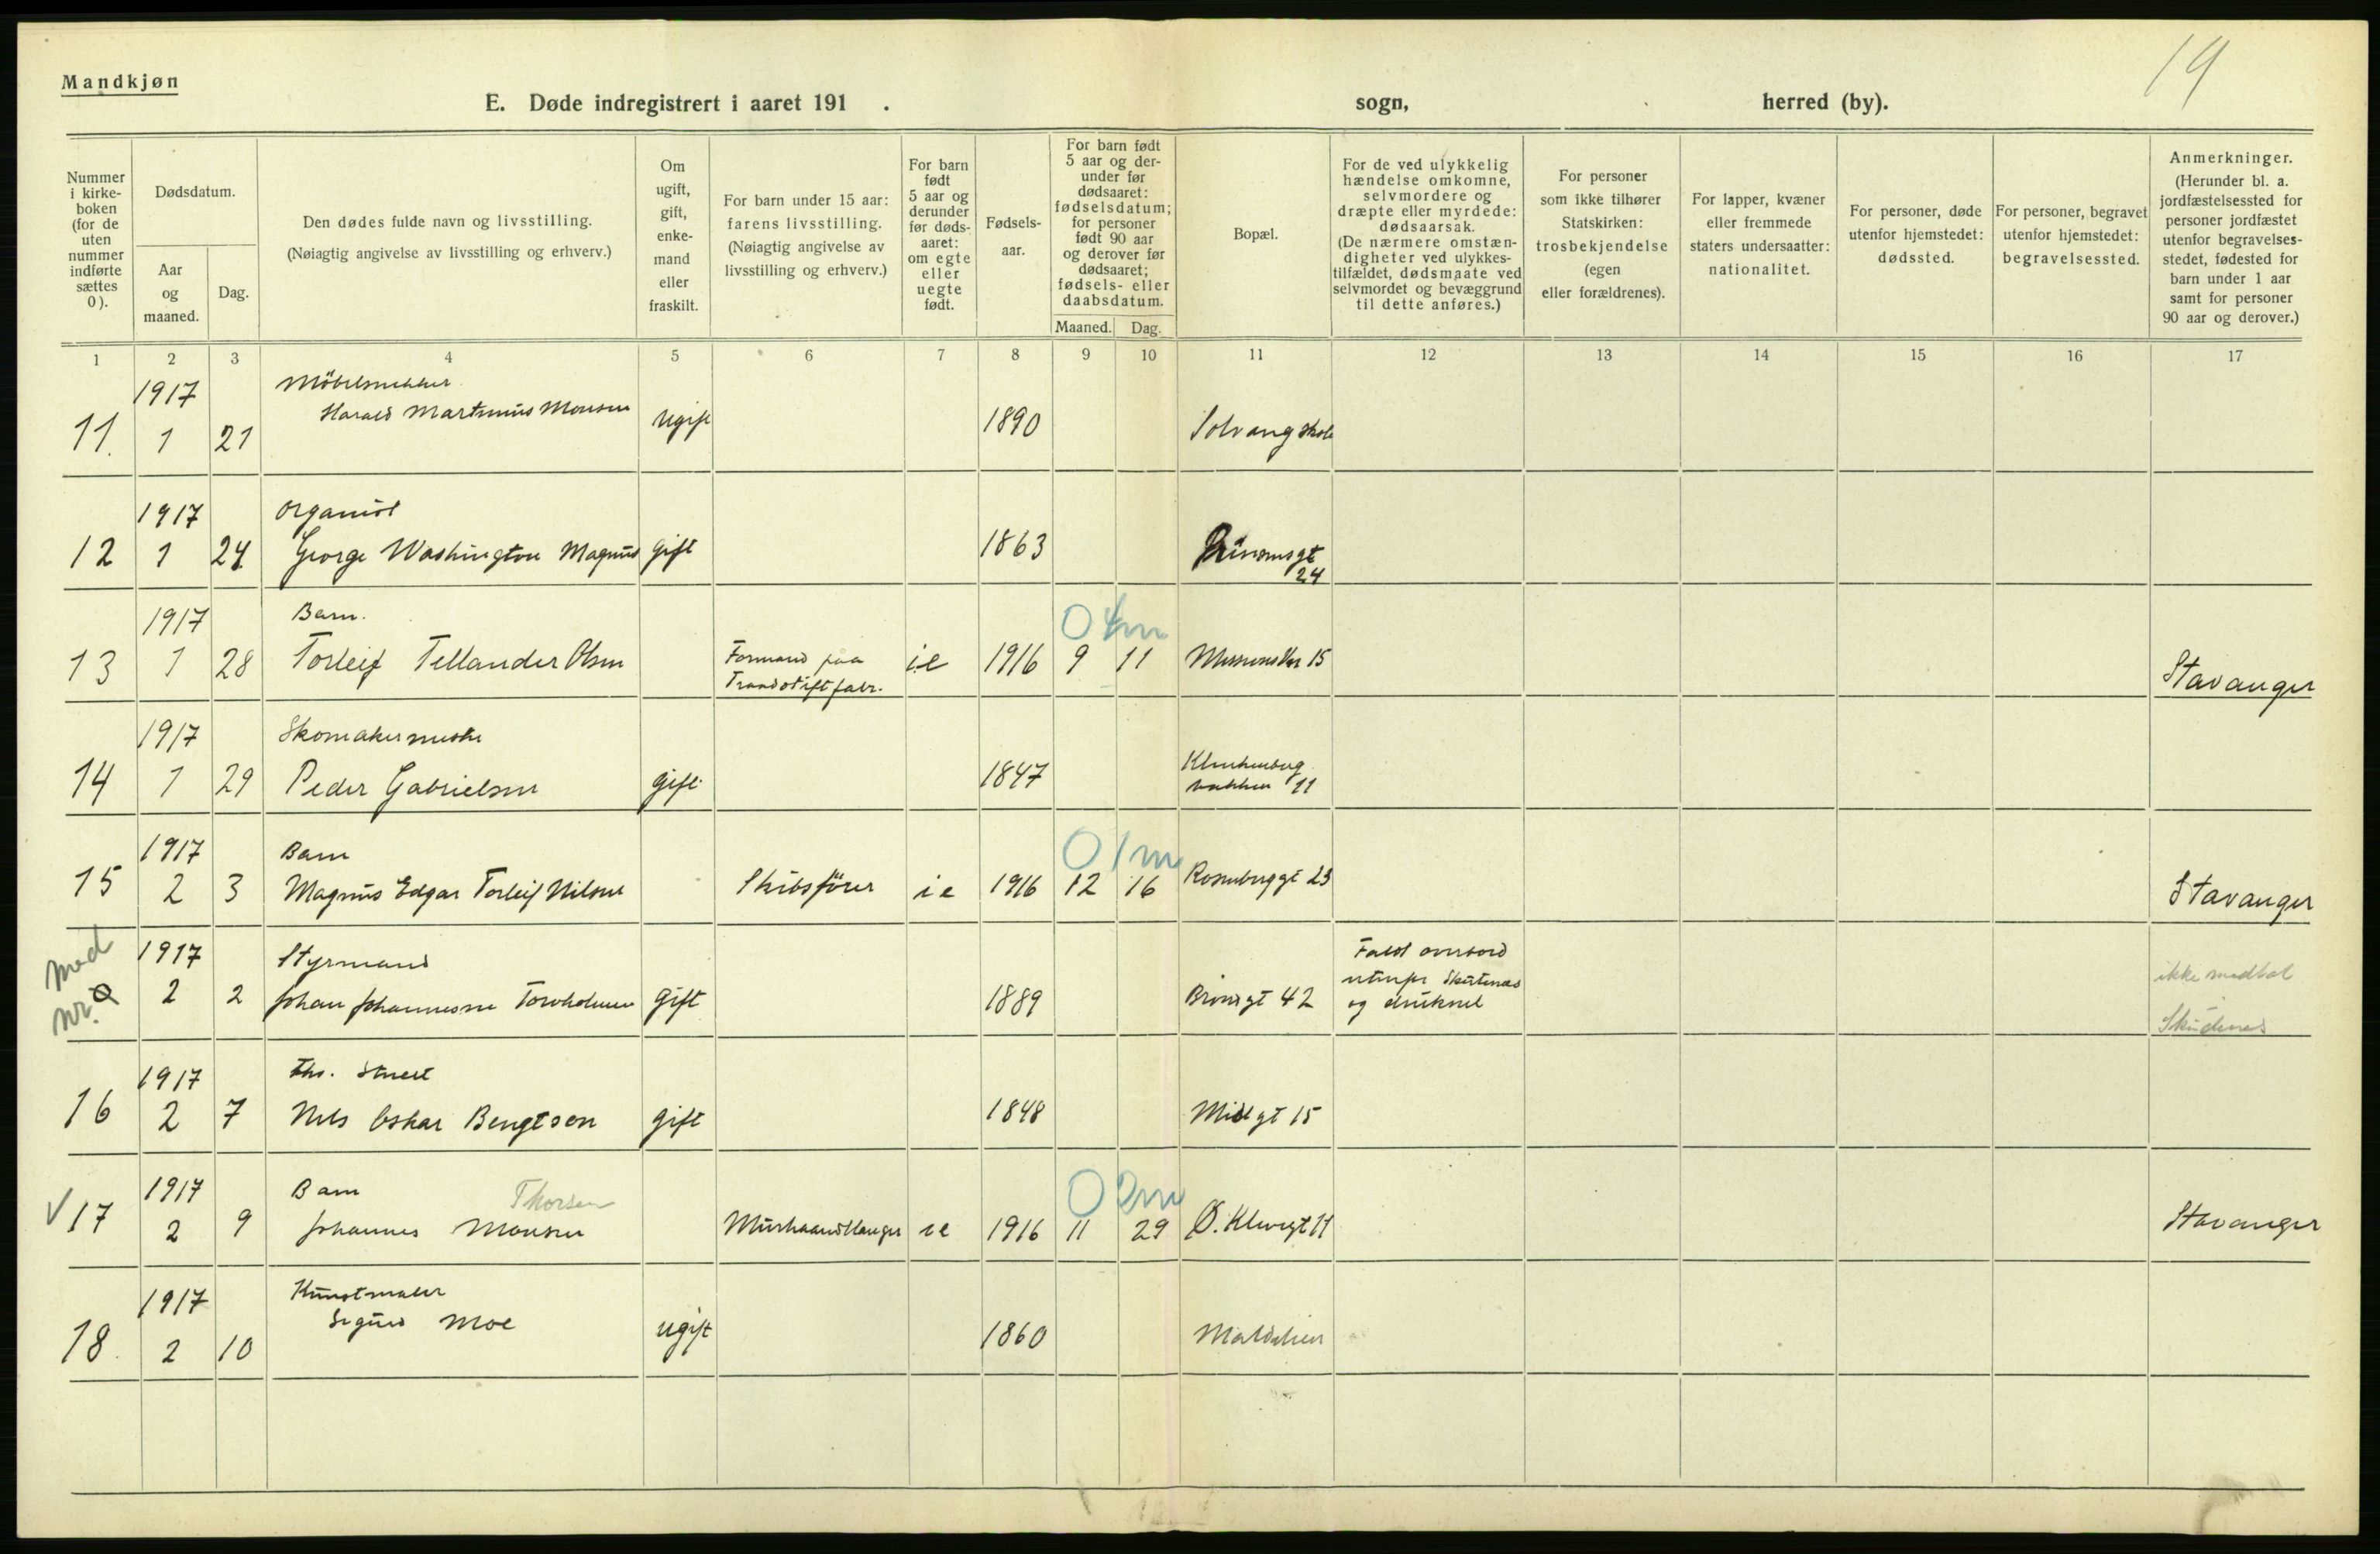 19
Mandkjøn
E. Døde indregistrert i aaret 191 . sogn, herred (by).
Nummer i kirke-boken (for de uten nummer indførte sættes 0).
Dødsdatum.
Aar og maaned.
Dag.
Den dødes fulde navn og livsstilling.
(Nøiagtig angivelse av livsstilling og erhverv.)
Om ugift, gift, enke-mand eller fraskilt.
For barn under 15 aar: farens livsstilling. (Nøiagtig angivelse av livsstilling og erhverv.)
For barn født 5 aar og derunder før døds-aaret: om egte eller uegte født.
Fødsels-aar.
For barn født 5 aar og der-under før dødsaaret: fødselsdatum; for personer født 90 aar og derover før dødsaaret; fødsels- eller daabsdatum.
Maaned. Dag.
Bopæl.
For de ved ulykkelig hændelse omkomne, selvmordere og dræpte eller myrdede: dødsaarsak. (De nærmere omstæn-digheter ved ulykkes-tilfældet, dødsmaate ved selvmordet og bevæggrund til dette anføres.)
For personer som ikke tilhører Statskirken: trosbekjendelse (egen eller forældrenes).
For lapper, kvæner eller fremmede staters undersaatter: nationalitet.
For personer, døde utenfor hjemstedet: dødssted.
For personer, begravet utenfor hjemstedet: begravelsessted.
Anmerkninger. (Herunder bl. a. jordfæstelsessted for personer jordfæstet utenfor begravelses-stedet, fødested for barn under 1 aar samt for personer 90 aar og derover.)
1 2 3 4 5 6 7 8 9 10 11 12 13 14 15 16 17
1917 Möbelsnekker
11. 1 21 Harald Martinius Monsen Ugift 1890 Solvang skole
1917 Organist
12 1 24 George Washington Magnus gift 1863 24
1917 Barn. 0 4m
13 1 28 Torleif Tellander Olsen Formand paa ie 1916 9 11 15
Traadstiftfabr. Stavanger
1917 Skomakermester
14 1 29 Peder Gabrielsen gift 1847 Klinkenberg
bakken 11
1917 Barn 0 1m
15 2 3 Magnus Edgar Torleif Nilsen Skibsförer ie 1916 12 16 Rosenberggt 23 Stavanger
med nr. 0
1917 Styrmand Faldt overbord
2 2 Johan Johannesen Torvholmen gift 1889 42 utenfor Skutenes ikke medtat
og druknet Skudenes
1917 Fhv.
16 2 7 Nils Oskar Bengtson gift 1848 Midlgt 15
1917 Barn Thorsen 0 2m
✓ 17 2 9 Johannes Monsen Murhaandtlanger ie 1916 11 29 Ø. Klevegt 11 Stavanger
1917 Kunstmaler
18. 2 10 Sigurd Moe ugift 1860